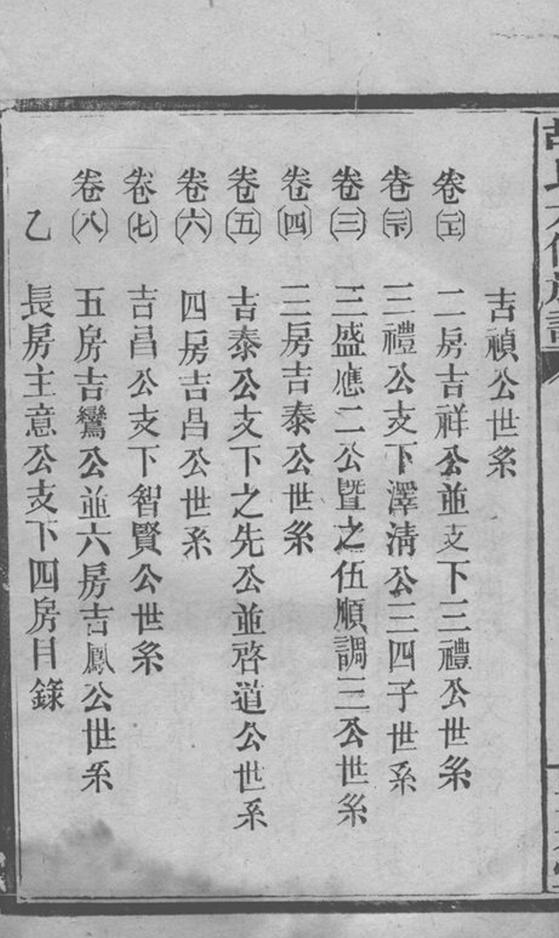 吉禎公世系
卷二上 二房吉祥公並支下三禮公世系
卷二下 三禮公支下澤清公三四子世系
卷三 三盛應二公暨之伍順調三公世系
卷四 三房吉泰公世系
卷五 吉泰公支下之先公並啓道公世系
卷六 四房吉昌公世系
卷七 吉昌公支下智賢公世系
卷八 五房吉鸞公並六房吉鳳公世系
乙 長房主意公支下四房目錄